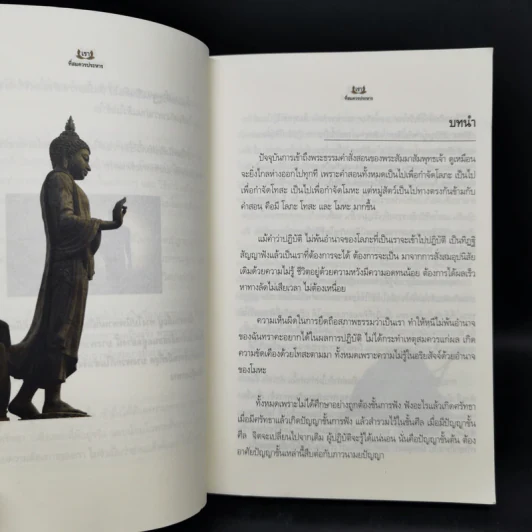 เรา
ที่สมควรประหาร
เรา
ที่สมควรประหาร
บทนำ
ปัจจุบันการเข้าถึงพระธรรมคำสั่งสอนของพระสัมมาสัมพุทธเจ้า ดูเหมือน
จะยิ่งไกลห่างออกไปทุกที เพราะคำสอนทั้งหมดเป็นไปเพื่อกำจัดโลภะ เป็นไป
เพื่อกำจัดโทสะ เป็นไปเพื่อกำจัดโมหะ แต่หมู่สัตว์เป็นไปทางตรงกันข้ามกับ
คำสอน คือมี โลภะ โทสะ และ โมหะ มากขึ้น
แม้คำว่าปฏิบัติ ไม่พ้นอำนาจของโลภะที่เป็นเราจะเข้าไปปฏิบัติ เป็นทิฏฐิ
สัญญาฟังแล้วเป็นเราที่ต้องการจะได้ ต้องการจะเป็น มาจากการสั่งสมอุปนิสัย
เดิมด้วยความไม่รู้ ชีวิตอยู่ด้วยความหวังมีความอดทนน้อย ต้องการได้ผลเร็ว
หาทางลัดไม่เสียเวลา ไม่ต้องเหนื่อย
ความเห็นผิดในการยึดถือสภาพธรรมว่าเป็นเรา ทำให้หนีไม่พ้นอำนาจ
ของฉันทราคะอยากได้ในผลการปฏิบัติ ไม่ได้กระทำเหตุสมควรแก่ผล เกิด
ความขัดเคืองด้วยโทสะตามมา ทั้งหมดเพราะความไม่รู้ในอริยสัจจ์ด้วยอำนาจ
ของโมหะ
ทั้งหมดเพราะไม่ได้ศึกษาอย่างถูกต้องขั้นการฟัง ฟังอะไรแล้วเกิดศรัทธา
เมื่อมีศรัทธาแล้วเกิดปัญญาขั้นการฟัง แล้วสำรวมไว้ในขั้นศีล เมื่อมีปัญญาขั้น
ศีล จิตจะเปลี่ยนไปจากเดิม ผู้ปฏิบัติจะรู้ได้แน่นอน นั่นคือปัญญาขั้นต้น ต้อง
อาศัยปัญญาขั้นเหล่านี้สืบต่อกับภาวนามยปัญญา